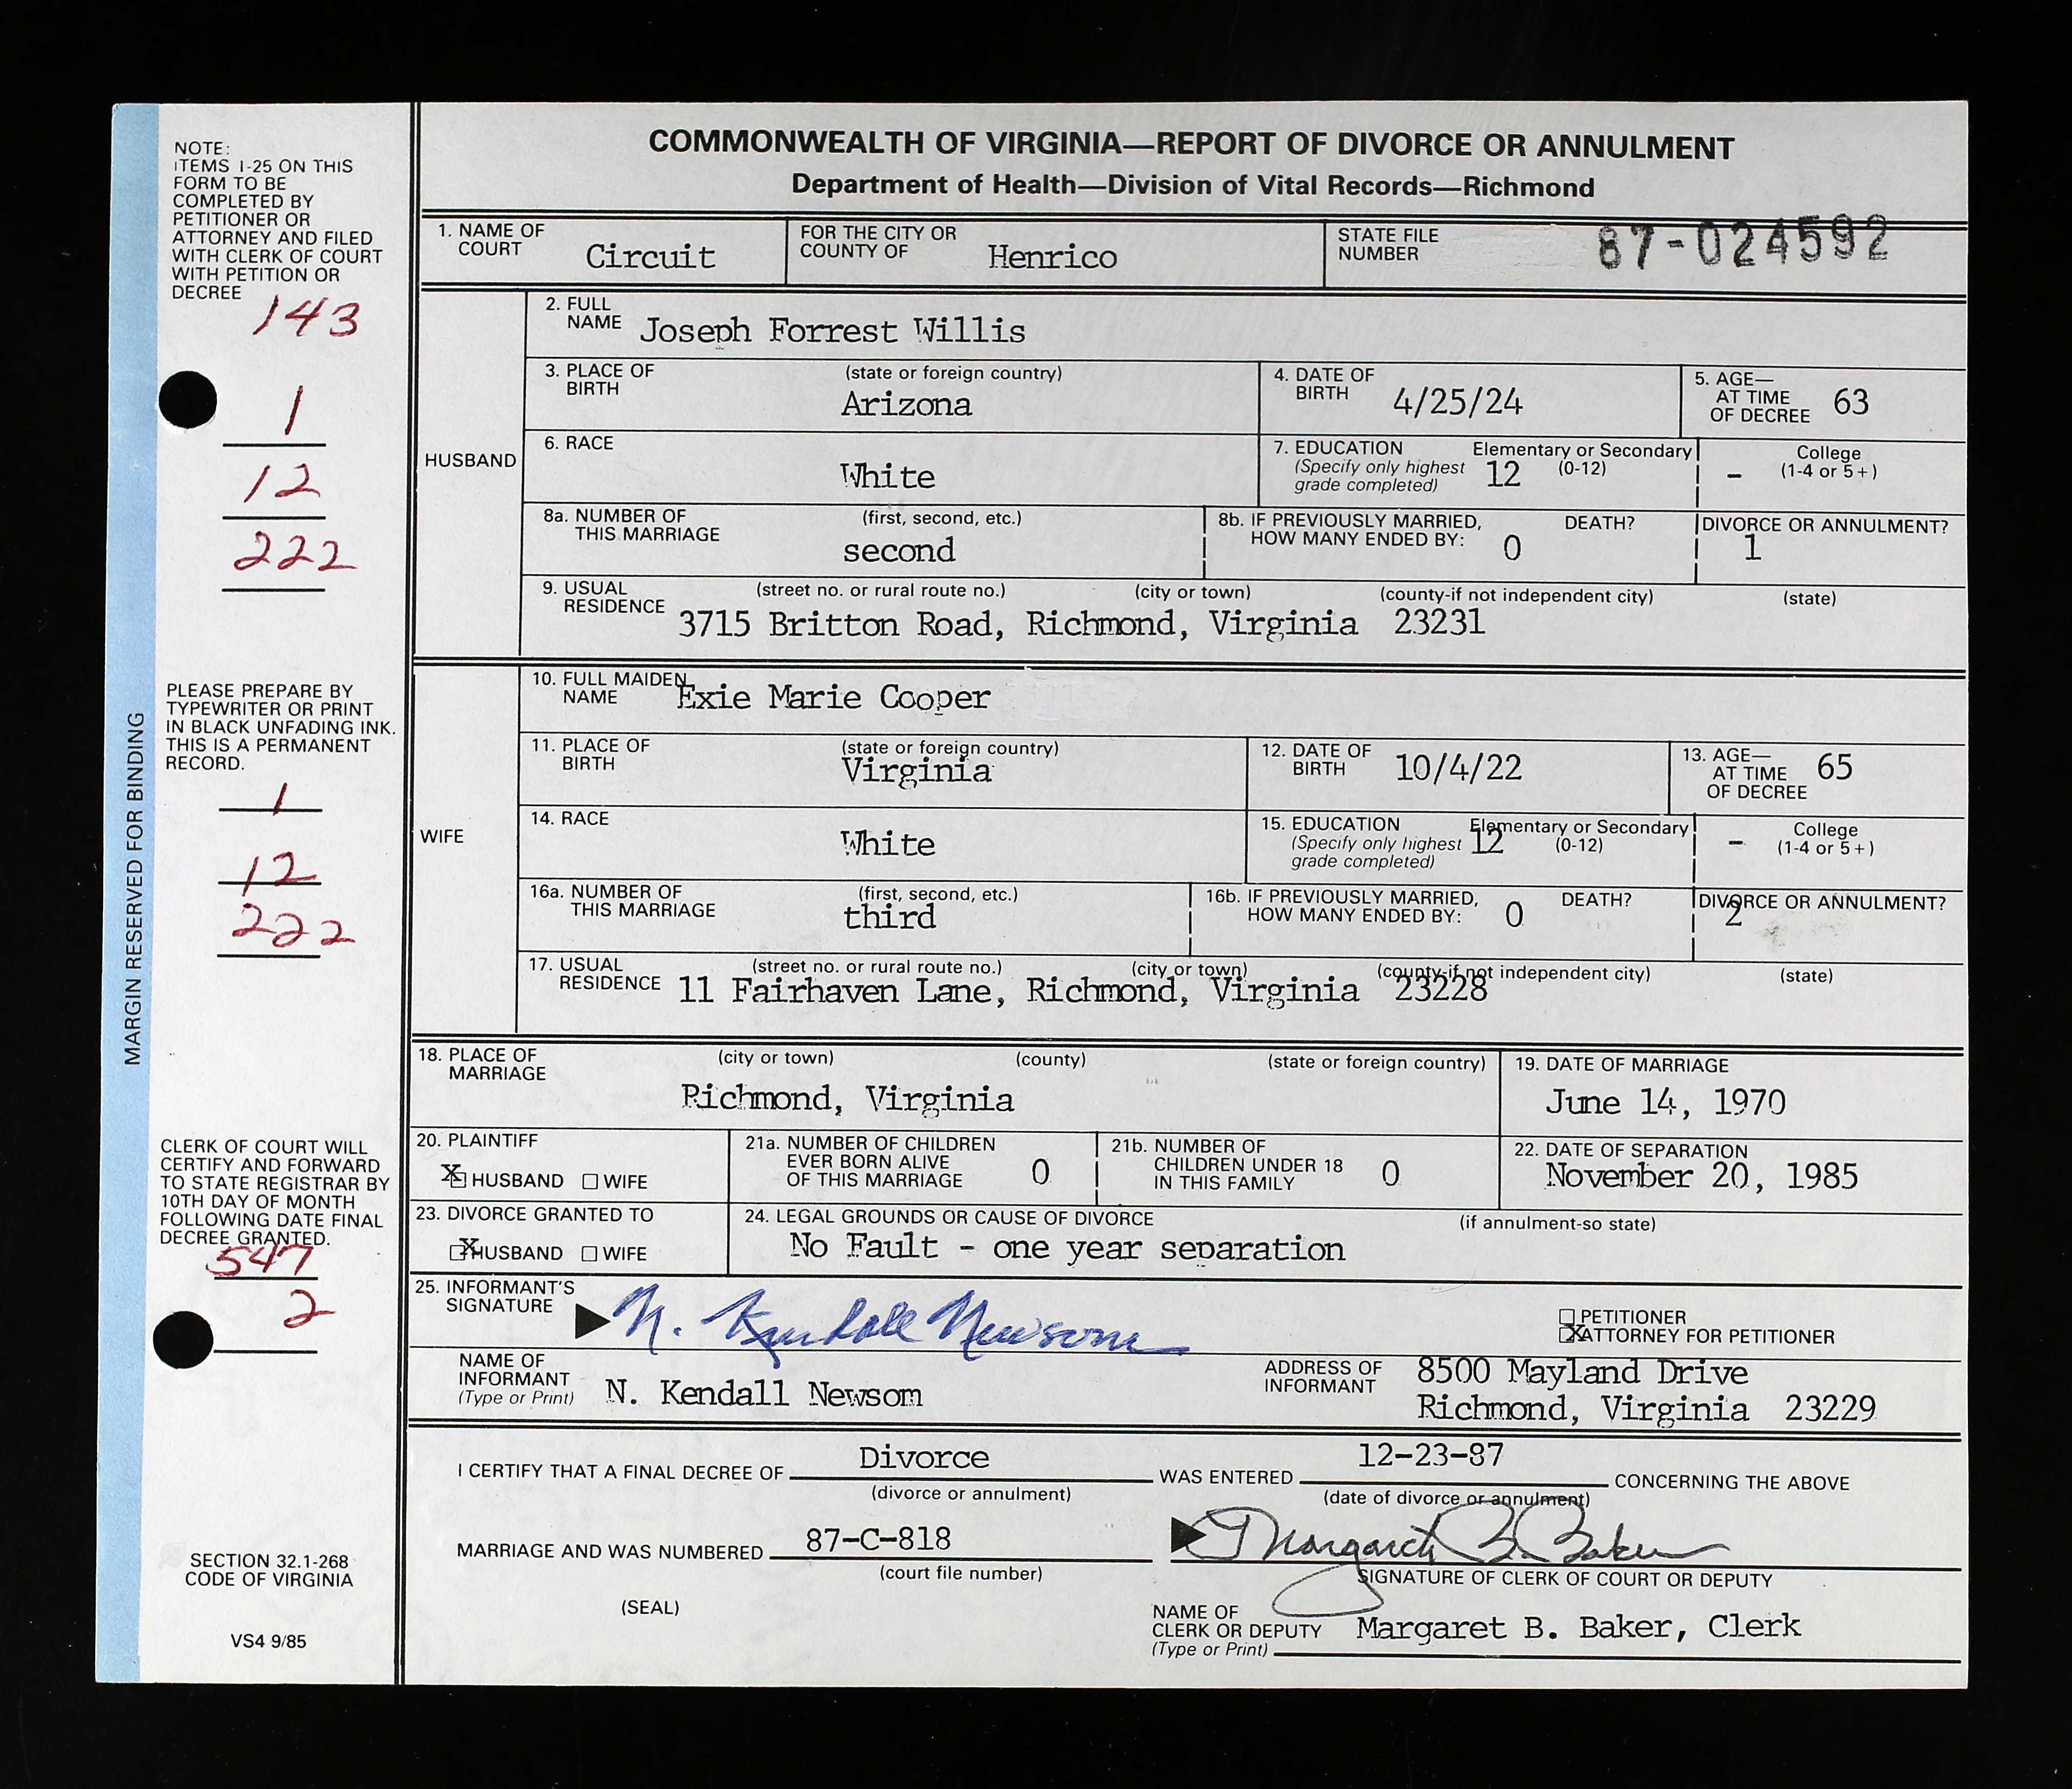 COMMONWEALTH OF VIRGINIA—REPORT OF DIVORCE OR ANNULMENT
Department of Health—Division of Vital Records—Richmond
NOTE:
ITEMS 1-25 ON THIS
FORM TO BE
COMPLETED BY
PETITIONER OR
ATTORNEY AND FILED
WITH CLERK OF COURT
WITH PETITION OR
DECREE
143
1
12
222
PLEASE PREPARE BY
TYPEWRITER OR PRINT
IN BLACK UNFADING INK.
THIS IS A PERMANENT
RECORD.
1
12
222
MARGIN RESERVED FOR BINDING
CLERK OF COURT WILL
CERTIFY AND FORWARD
TO STATE REGISTRAR BY
10TH DAY OF MONTH
FOLLOWING DATE FINAL
DECREE GRANTED.
547
2
SECTION 32.1-268
CODE OF VIRGINIA
VS4 9/85
1. NAME OF COURT Circuit
FOR THE CITY OR COUNTY OF Henrico
STATE FILE NUMBER 87-024592
HUSBAND
2. FULL NAME Joseph Forrest Willis
3. PLACE OF BIRTH (state or foreign country) Arizona
4. DATE OF BIRTH 4/25/24
5. AGE— AT TIME OF DECREE 63
6. RACE White
7. EDUCATION (Specify only highest grade completed) Elementary or Secondary (0-12) 12
College (1-4 or 5+) -
8a. NUMBER OF THIS MARRIAGE (first, second, etc.) second
8b. IF PREVIOUSLY MARRIED, HOW MANY ENDED BY: DEATH? 0
DIVORCE OR ANNULMENT? 1
9. USUAL RESIDENCE (street no. or rural route no.) (city or town) (county-if not independent city) (state)
3715 Britton Road, Richmond, Virginia 23231
WIFE
10. FULL MAIDEN NAME Exie Marie Cooper
11. PLACE OF BIRTH (state or foreign country) Virginia
12. DATE OF BIRTH 10/4/22
13. AGE— AT TIME OF DECREE 65
14. RACE White
15. EDUCATION (Specify only highest grade completed) Elementary or Secondary (0-12) 12
College (1-4 or 5+) -
16a. NUMBER OF THIS MARRIAGE (first, second, etc.) third
16b. IF PREVIOUSLY MARRIED, HOW MANY ENDED BY: DEATH? 0
DIVORCE OR ANNULMENT? 2
17. USUAL RESIDENCE (street no. or rural route no.) (city or town) (county-if not independent city) (state)
11 Fairhaven Lane, Richmond, Virginia 23228
18. PLACE OF MARRIAGE (city or town) (county) (state or foreign country)
Richmond, Virginia
19. DATE OF MARRIAGE
June 14, 1970
20. PLAINTIFF
X HUSBAND ☐ WIFE
21a. NUMBER OF CHILDREN EVER BORN ALIVE OF THIS MARRIAGE 0
21b. NUMBER OF CHILDREN UNDER 18 IN THIS FAMILY 0
22. DATE OF SEPARATION
November 20, 1985
23. DIVORCE GRANTED TO
X HUSBAND ☐ WIFE
24. LEGAL GROUNDS OR CAUSE OF DIVORCE (if annulment-so state)
No Fault - one year separation
25. INFORMANT'S SIGNATURE N. Kendall Newsom
☐ PETITIONER
X ATTORNEY FOR PETITIONER
NAME OF INFORMANT (Type or Print) N. Kendall Newsom
ADDRESS OF INFORMANT 8500 Mayland Drive
Richmond, Virginia 23229
I CERTIFY THAT A FINAL DECREE OF Divorce WAS ENTERED 12-23-87 CONCERNING THE ABOVE
(divorce or annulment) (date of divorce or annulment)
MARRIAGE AND WAS NUMBERED 87-C-818 Margaret B. Baker
(court file number) SIGNATURE OF CLERK OF COURT OR DEPUTY
(SEAL)
NAME OF CLERK OR DEPUTY (Type or Print) Margaret B. Baker, Clerk